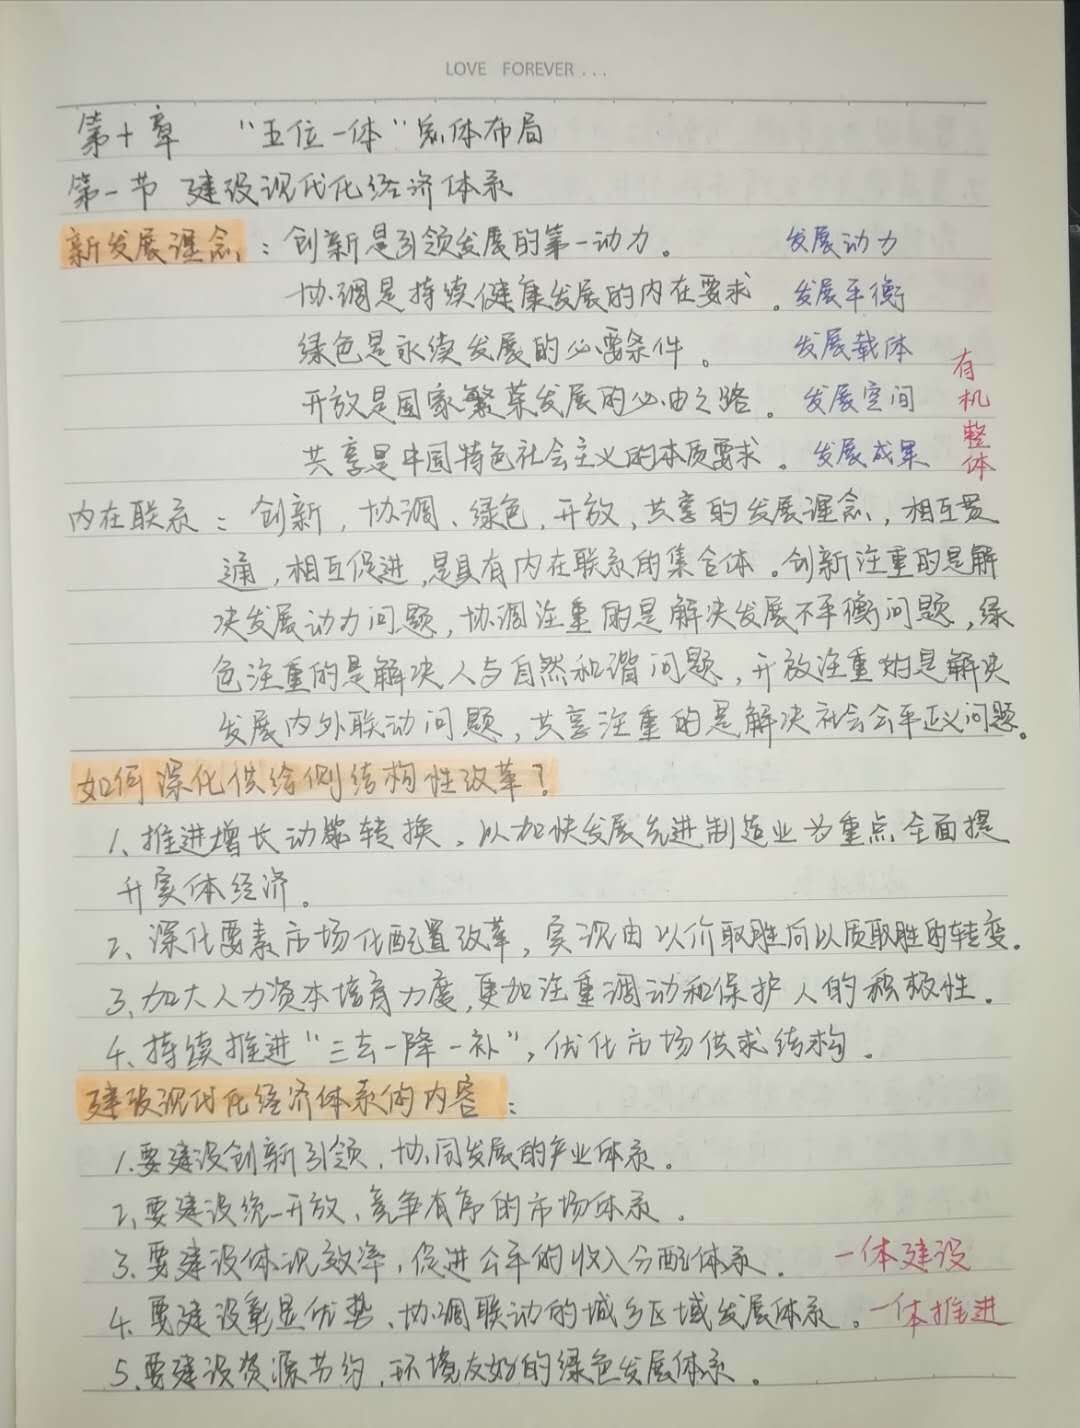 LOVE FOREVER ...
第十章 “五位一体”总体布局
第一节 建设现代化经济体系
新发展理念：创新是引领发展的第一动力。 发展动力
协调是持续健康发展的内在要求。发展平衡
绿色是永续发展的必要条件。 发展载体
开放是国家繁荣发展的必由之路。发展空间
共享是中国特色社会主义的本质要求。发展成果
有机整体
内在联系：创新，协调、绿色，开放，共享的发展理念，相互贯
通，相互促进，是具有内在联系的集合体。创新注重的是解
决发展动力问题，协调注重的是解决发展不平衡问题，绿
色注重的是解决人与自然和谐问题，开放注重的是解决
发展内外联动问题，共享注重的是解决社会公平正义问题。
如何深化供给侧结构性改革？
1、推进增长动能转换、以加快发展先进制造业为重点全面提
升实体经济。
2、深化要素市场化配置改革，实现由以价取胜向以质取胜的转变。
3、加大人力资本培育力度，更加注重调动和保护人的积极性。
4、持续推进“三去一降一补”，优化市场供求结构。
建设现代化经济体系的内容：
1、要建设创新引领，协同发展的产业体系。
2、要建设统一开放、竞争有序的市场体系。
3、要建设体现效率，促进公平的收入分配体系。 一体建设
4、要建设彰显优势、协调联动的城乡区域发展体系。一体推进
5、要建设资源节约，环境友好的绿色发展体系。